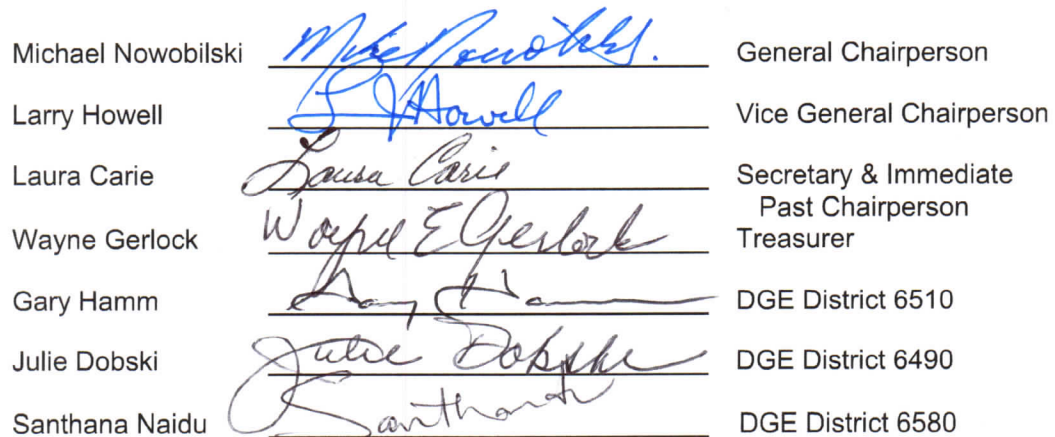 Michael Nowobilski Mike Nowobilski. General Chairperson
Larry Howell L J Howell Vice General Chairperson
Laura Carie Laura Carie Secretary & Immediate
Past Chairperson
Wayne Gerlock Wayne E Gerlock Treasurer
Gary Hamm Gary Hamm DGE District 6510
Julie Dobski Julie Dobski DGE District 6490
Santhana Naidu Santhana DGE District 6580